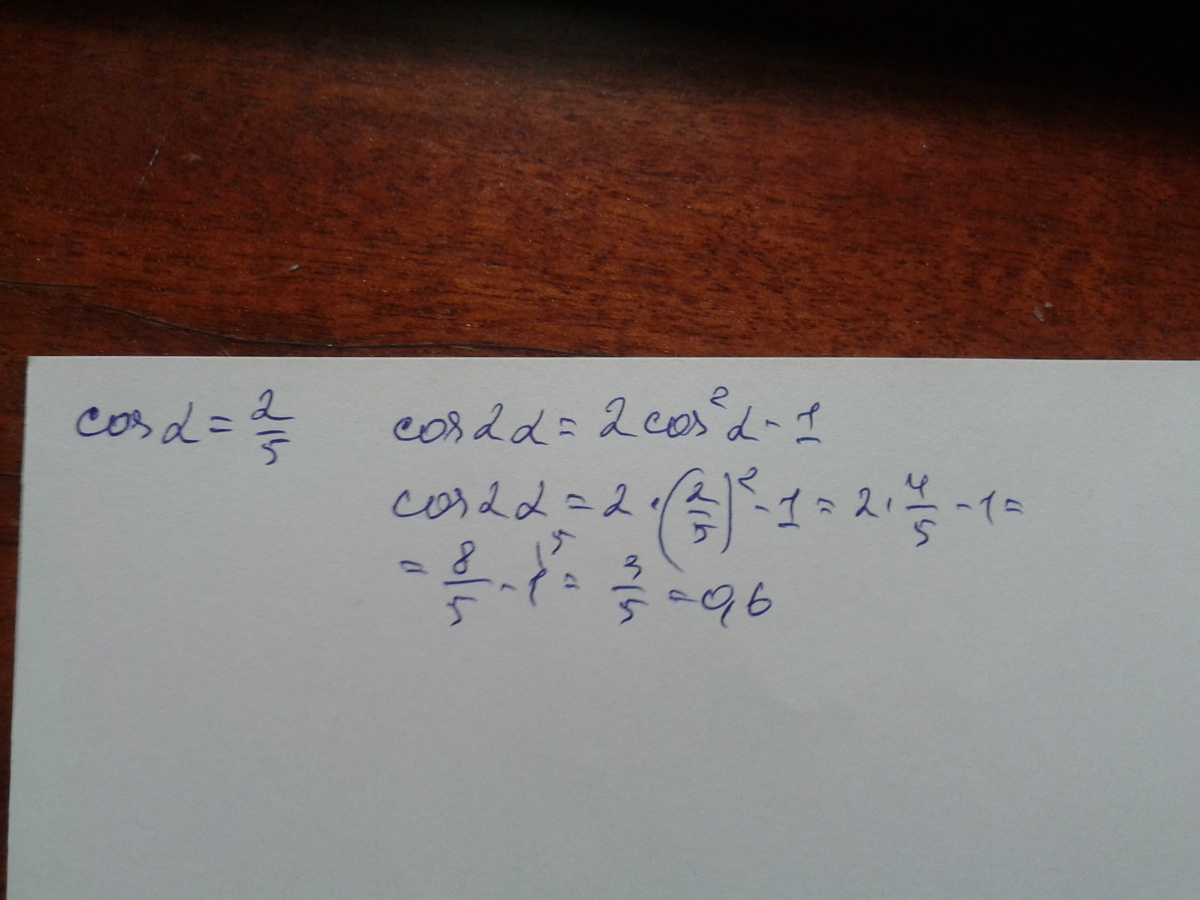 cos α = 2/5
cos 2α = 2 cos² α - 1
cos 2α = 2 · (2/5)² - 1 = 2 · 4/5 - 1 =
= 8/5 - 1\5 = 3/5 = 0,6